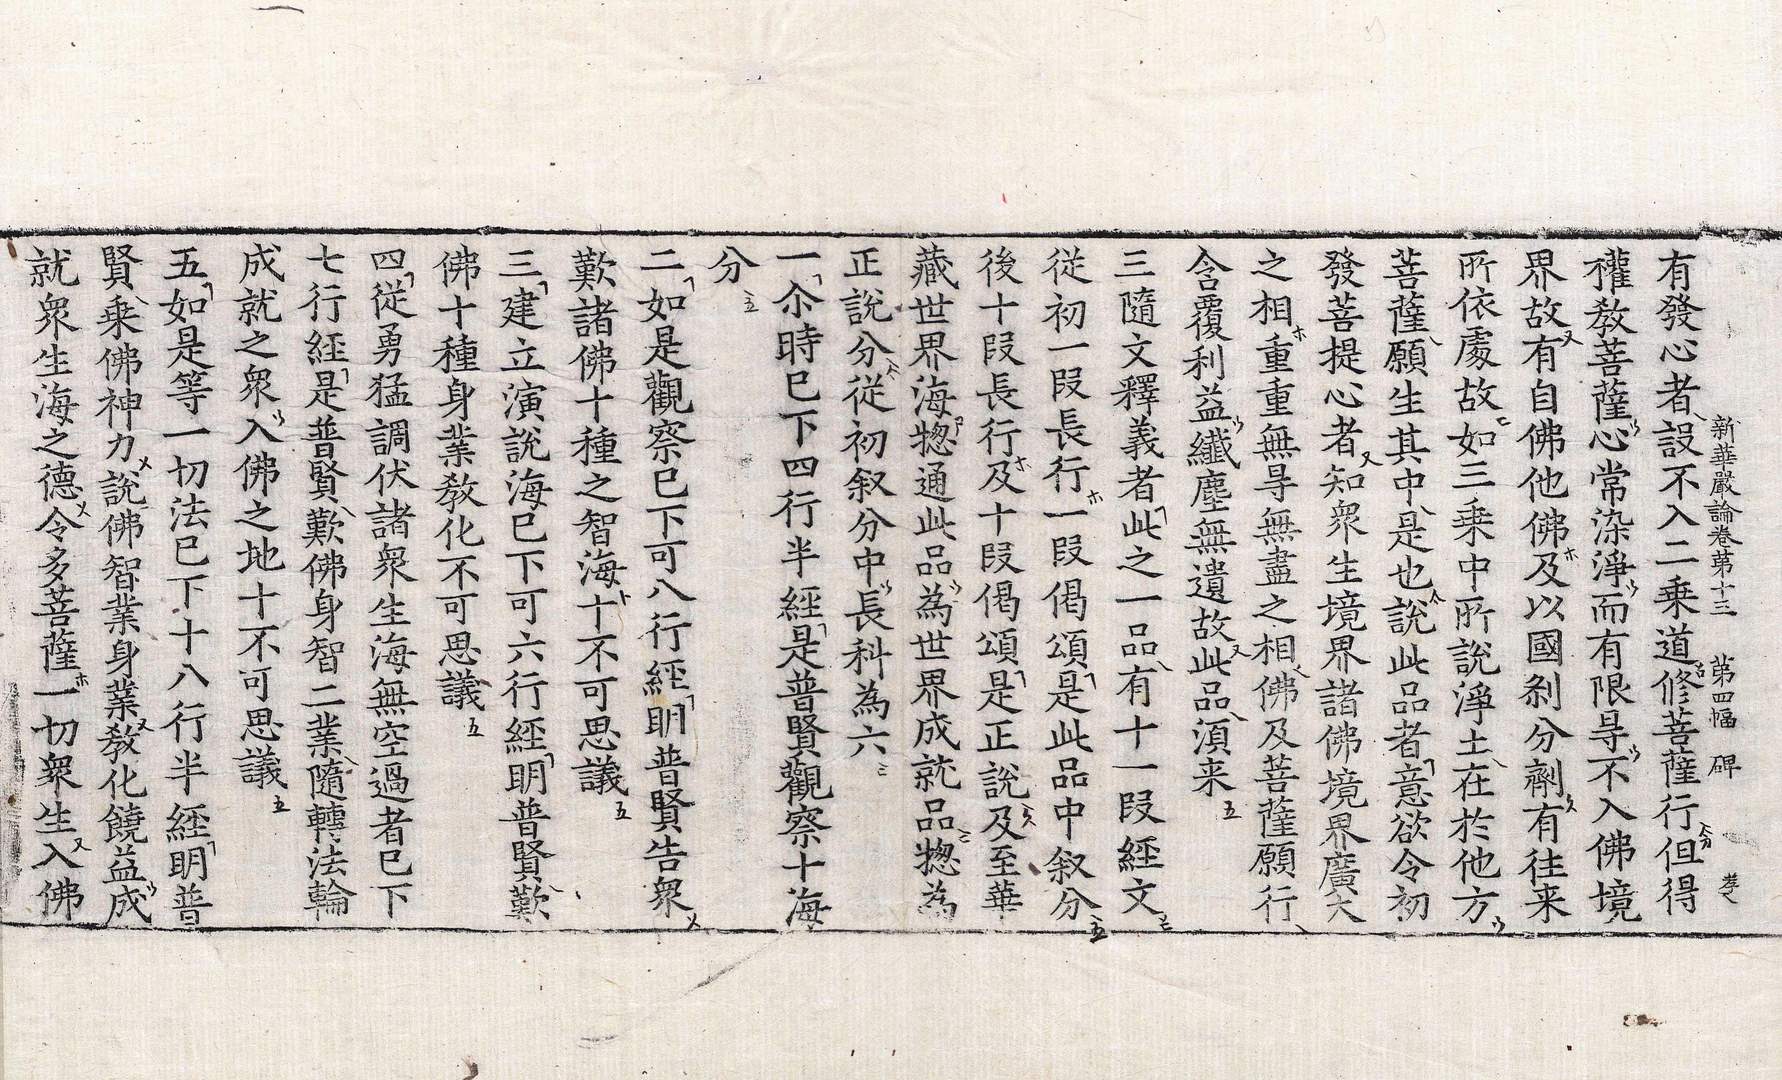 新華嚴論卷第十三　第四幅　碑
有發心者設不入二乗道修菩薩行但得
權教菩薩心常染淨而有限㝵不入佛境
界故有自佛他佛及以國剎分劑有往来
所依處故如三乗中所說淨土在於他方
菩薩願生其中是也說此品者意欲令初
發菩提心者知衆生境界諸佛境界廣大
之相重重無㝵無盡之相佛及菩薩願行
含覆利益纎塵無遺故此品湏来
三隨文釋義者此之一品有十一叚經文
從初一叚長行一叚偈頌是此品中叙分
後十叚長行及十叚偈頌是正說及至華
藏世界海揔通此品為世界成就品揔為
正說分從初叙分中長科為六
一尒時已下四行半經是普賢觀察十海
分
二如是觀察已下可八行經明普賢告衆
歎諸佛十種之智海十不可思議
三建立演說海已下可六行經明普賢歎
佛十種身業教化不可思議
四從勇猛調伏諸衆生海無空過者已下
七行經是普賢歎佛身智二業隨轉法輪
成就之衆入佛之地十不可思議
五如是等一切法已下十八行半經明普
賢乗佛神力說佛智業身業教化饒益成
就衆生海之德令多菩薩一切衆生入佛